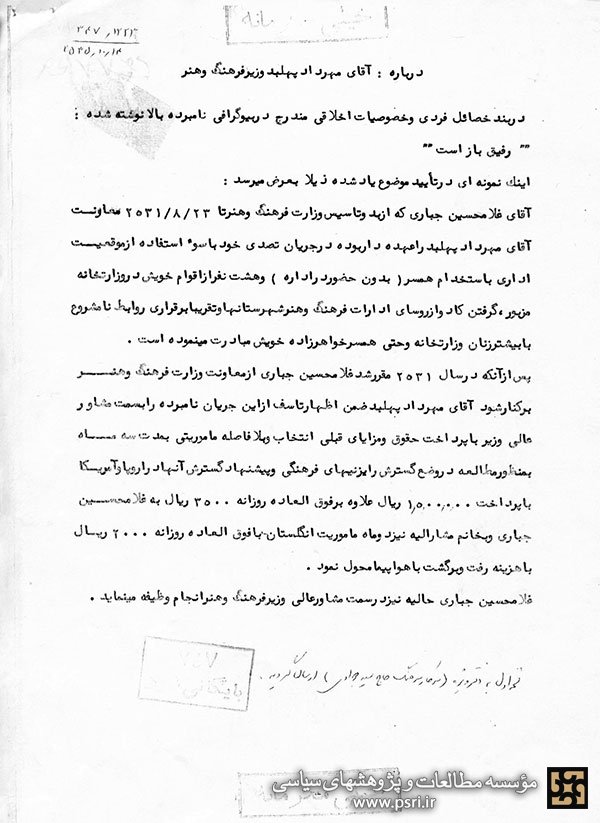 خیلی محرمانه
۳۴۷/۱۲۲۱
۲۵۳۵/۱۰/۱۴
درباره : آقای مهرداد پهلبد وزیر فرهنگ وهنر
دربند خصائل فردی وخصوصیات اخلاقی مندرج دربیوگرافی نامبرده بالا نوشته شده :
"" رفیق باز است ""
اینك نمونه ای درتأیید موضوع یاد شده ذیلا بعرض میرسد :
آقای غلامحسین جباری که ازبد وتاسیس وزارت فرهنگ وهنرتا ۲۵۳۱/۸/۲۳ معاونت
آقای مهرداد پهلبد راعهده داربوده درجریان تصدی خود باسوء استفاده ازموقعیت
اداری با استخدام همسر( بدون حضوردراداره ) وهشت نفرازاقوام خویش دروزارتخانه
مزبور ،گرفتن کاد وازروسای ادارات فرهنگ وهنرشهرستانها وتقریبا برقراری روابط نامشروع
بابیشترزنان وزارتخانه وحتی همسرخواهرزاده خویش مبادرت مینموده است .
پس ازآنکه درسال ۲۵۳۱ مقررشد غلامحسین جباری ازمعاونت وزارت فرهنگ وهنــر
برکنارشود آقای مهرداد پهلبد ضمن اظهارتاسف ازاین جریان نامبرده رابسمت مشاور
عالی وزیر باپرداخت حقوق ومزایای قبلی انتخاب وبلافاصله ماموریتی بمدت سه مــاه
بمنظورمطالعه دروضع گسترش رایزنیهای فرهنگی وپیشنهاد گسترش آنهاد راروپا وآمریکا
باپرداخت ۱٫۵۰۰٫۰۰۰ ریال علاوه برفوق العاده روزانه ۳۵۰۰ ریال به غلامحســین
جباری وبخانم مشارالیه نیزدوماه ماموریت انگلستان بافوق العاده روزانه ۲۰۰۰ ریــال
باهزینه رفت وبرگشت باهواپیما محول نمود .
غلامحسین جباری حالیه نیزدرسمت مشاورعالی وزیرفرهنگ وهنرانجام وظیفه مینماید .
ارسال گردید .
بایگانی
مؤسسه مطالعات و پژوهشهای سیاسی
www.psri.ir